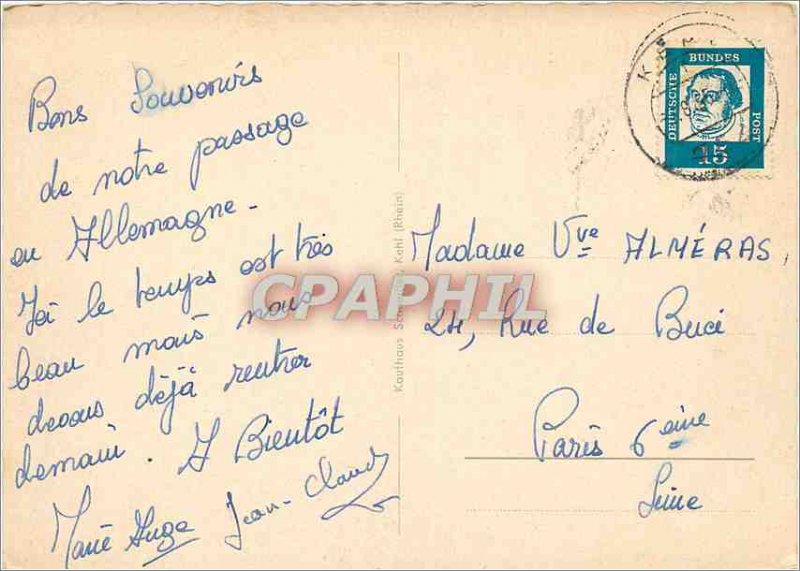 Bons Souvenirs
de notre passage
en Allemagne -
Ici le temps est très
beau mais nous
devons déjà rentrer
demain . A Bientôt
Marie Ange Jean-Claude
Kaufhaus Kehl (Rhein)
DEUTSCHE BUNDES POST
15
Madame Vve ALMÉRAS,
24, Rue de Buci
Paris 6eme
Seine
CPAPHIL